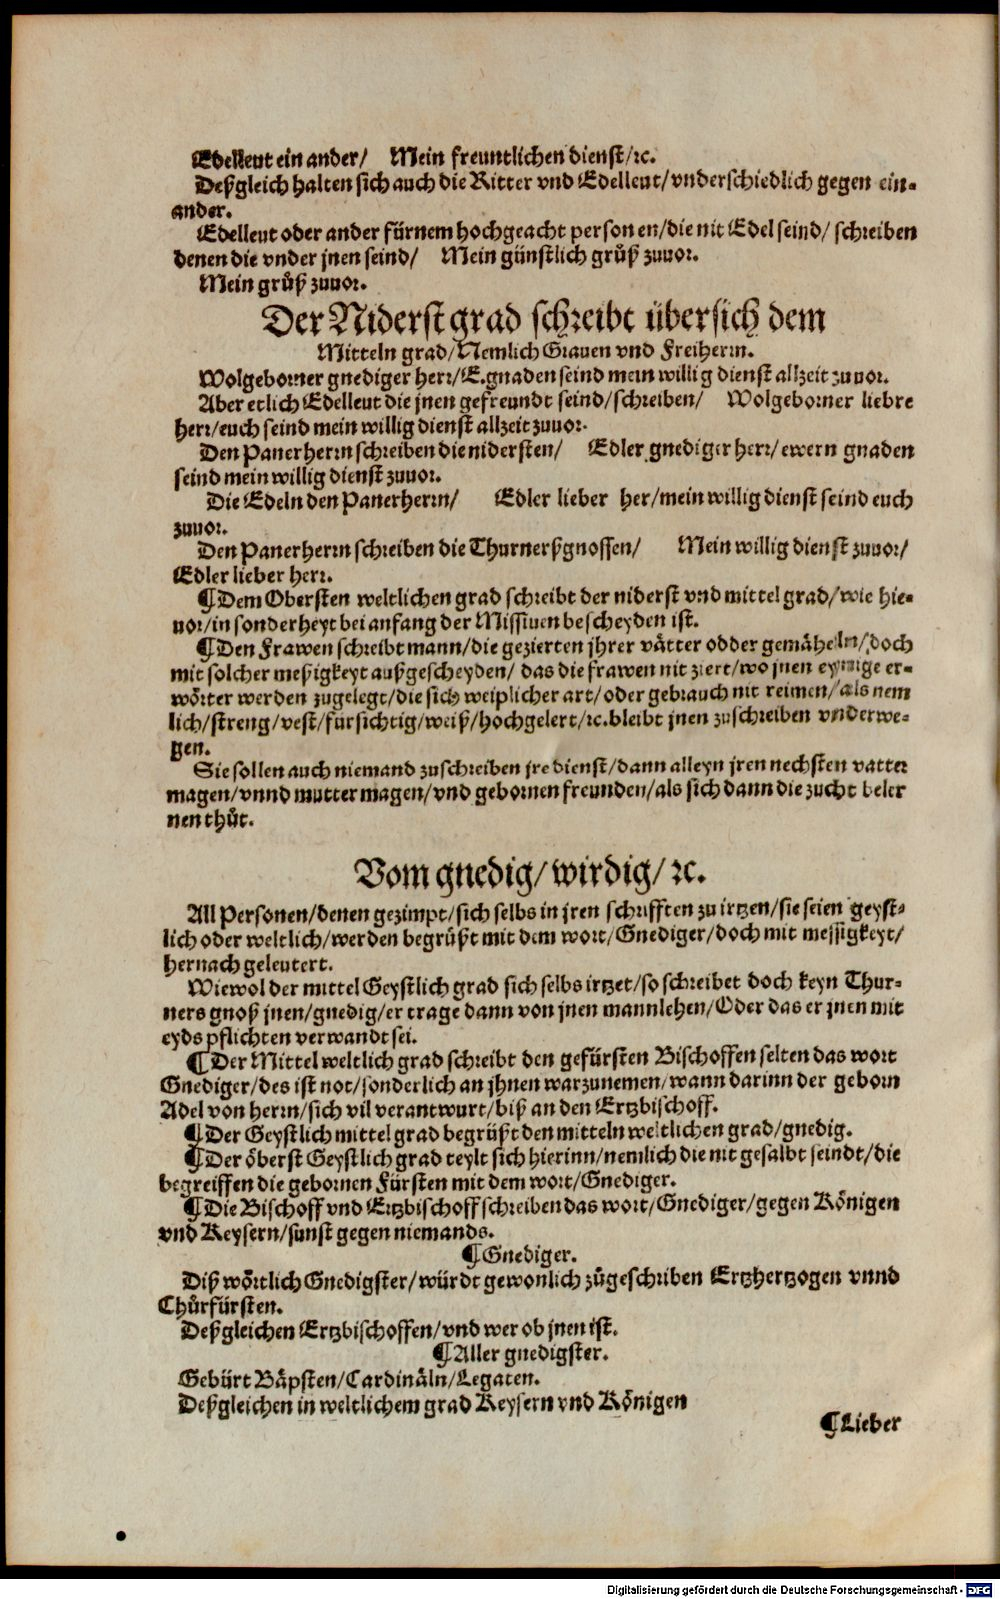 Edelleut ein ander/ Mein freuntlichen dienst/ꝛc.
Deßgleich halten sich auch die Ritter vnd Edelleut/vnderschiedlich gegen ein-
ander.
Edelleut oder ander fürnem hochgeacht person en/die nit Edel seind/ schreiben
denen die vnder jnen seind/ Mein günstlich grůß zuuor.
Mein grůß zuuor.
Der Niderst grad schreibt übersich dem
Mitteln grad/Nemlich Grauen vnd Freiherrn.
Wolgeborner gnediger herr/E.gnaden seind mein willig dienst allzeit zuuor.
Aber etlich Edelleut die jnen gefreundt seind/schreiben/ Wolgeborner liebre
herr/euch seind mein willig dienst allzeit zuuor.
Den Panerherrn schreiben die nidersten/ Edler gnediger herr/ewern gnaden
seind mein willig dienst zuuor.
Die Edeln den Panerherrn/ Edler lieber her/mein willig dienst seind euch
zuuor.
Den Panerherrn schreiben die Thurnerßgnossen/ Mein willig dienst zuuor/
Edler lieber herr.
¶Dem Obersten weltlichen grad schreibt der niderst vnd mittel grad/wie hie-
uor/in sonderheyt bei anfang der Missiuen bescheyden ist.
¶Den Frawen schreibt mann/die gezierten jhrer vätter odder gemäheln/doch
mit solcher meßigkeyt außgescheyden/ das die frawen nit ziert/wo jnen eynige er-
wörter werden zugelegt/die sich weiplicher art/oder gebrauch nit reimen/als nem
lich/streng/vest/fürsichtig/weiß/hochgelert/ꝛc.bleibt jnen zuschreiben vnderwe-
gen.
Sie sollen auch niemand zuschreiben jre dienst/dann alleyn jren nechsten vatter
magen/vnnd mutter magen/vnd gebornen freunden/als sich dann die zucht beler
nen thůt.
Vom gnedig/wirdig/ꝛc.
All Personen/denen gezimpt/sich selbs in jren schrifften zu irtzen/sie seien geyst-
lich oder weltlich/werden begrüßt mit dem wort/Gnediger/doch mit messigkeyt/
hernach geleutert.
Wiewol der mittel Geystlich grad sich selbs irtzet/so schreibet doch keyn Thur-
ners gnoß jnen/gnedig/er trage dann von jnen mannlehen/Oder das er jnen mit
eyds pflichten verwandt sei.
¶Der Mittel weltlich grad schreibt den gefürsten Bischoffen selten das wort
Gnediger/des ist not/sonderlich an jhnen warzunemen/wann darinn der geborn
Adel von herrn/sich vil verantwurt/biß an den Ertzbischoff.
¶Der Geystlich mittel grad begrüßt den mitteln weltlichen grad/gnedig.
¶Der öberst Geystlich grad teylt sich hierinn/nemlich die nit gesalbt seindt/die
begreiffen die gebornen Fürsten mit dem wort/Gnediger.
¶Die Bischoff vnd Ertzbischoff schreiben das wort/Gnediger/gegen Königen
vnd Keysern/sunst gegen niemands.
¶Gnediger.
Diß wörtlich Gnedigster/würdt gewonlich zůgeschriben Ertzhertzogen vnnd
Chůrfürsten.
Deßgleichen Ertzbischoffen/vnd wer ob jnen ist.
¶Aller gnedigster.
Gebürt Bäpsten/Cardinäln/Legaten.
Deßgleichen in weltlichem grad Keysern vnd Königen
¶Lieber
Digitalisierung gefördert durch die Deutsche Forschungsgemeinschaft - DFG